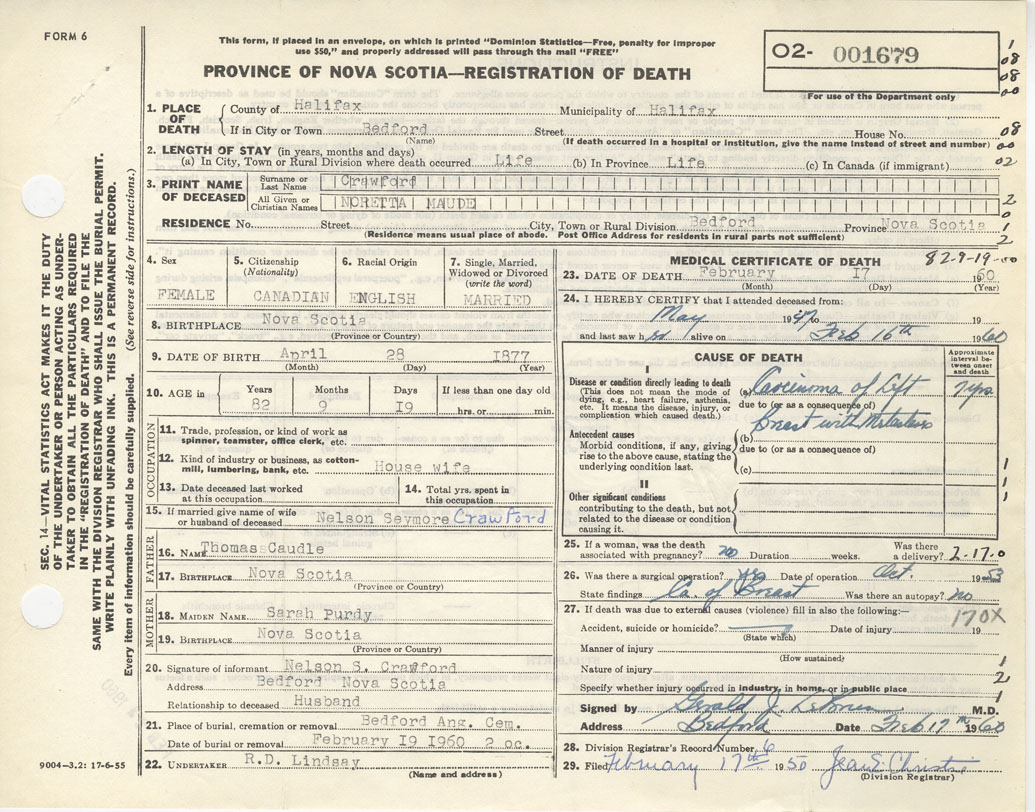 FORM 6
This form, if placed in an envelope, on which is printed "Dominion Statistics—Free, penalty for improper
use $50," and properly addressed will pass through the mail "FREE"
PROVINCE OF NOVA SCOTIA—REGISTRATION OF DEATH
02- 001679
For use of the Department only
1. PLACE OF DEATH
County of Halifax Municipality of Halifax
If in City or Town Bedford Street House No.
(Name) (If death occurred in a hospital or institution, give the name instead of street and number)
2. LENGTH OF STAY (in years, months and days)
(a) In City, Town or Rural Division where death occurred Life (b) In Province Life (c) In Canada (if immigrant)
3. PRINT NAME OF DECEASED
Surname or Last Name Crawford
All Given or Christian Names NORETTA MAUDE
RESIDENCE No. Street City, Town or Rural Division Bedford Province Nova Scotia
(Residence means usual place of abode. Post Office Address for residents in rural parts not sufficient)
4. Sex FEMALE
5. Citizenship (Nationality) CANADIAN
6. Racial Origin ENGLISH
7. Single, Married, Widowed or Divorced (write the word) MARRIED
8. BIRTHPLACE Nova Scotia
(Province or Country)
9. DATE OF BIRTH April 28 1877
(Month) (Day) (Year)
10. AGE in Years Months Days If less than one day old
82 9 19 hrs. or min.
OCCUPATION
11. Trade, profession, or kind of work as
spinner, teamster, office clerk, etc.
12. Kind of industry or business, as cotton-
mill, lumbering, bank, etc. House wife
13. Date deceased last worked
at this occupation
14. Total yrs. spent in
this occupation
15. If married give name of wife
or husband of deceased Nelson Seymore Crawford
FATHER
16. NAME Thomas Caudle
17. BIRTHPLACE Nova Scotia
(Province or Country)
MOTHER
18. MAIDEN NAME Sarah Purdy
19. BIRTHPLACE Nova Scotia
(Province or Country)
20. Signature of informant Nelson S. Crawford
Address Bedford Nova Scotia
Relationship to deceased Husband
21. Place of burial, cremation or removal Bedford Ang. Cem.
Date of burial or removal February 19 1960 2 oc.
22. UNDERTAKER R.D. Lindsay
(Name and address)
9004-3.2: 17-6-55
MEDICAL CERTIFICATE OF DEATH 82-9-19
23. DATE OF DEATH February 17 1960
(Month) (Day) (Year)
24. I HEREBY CERTIFY that I attended deceased from:
May 1947 to 19
and last saw h alive on Feb 16th 1960
CAUSE OF DEATH
Approximate interval between onset and death
I
Disease or condition directly leading to death
(This does not mean the mode of
dying, e.g., heart failure, asthenia,
etc. It means the disease, injury, or
complication which caused death.)
(a) Carcinoma of Left 7 yrs.
due to (or as a consequence of)
Breast with Metastasis
Antecedent causes
Morbid conditions, if any, giving
rise to the above cause, stating the
underlying condition last.
(b)
due to (or as a consequence of)
(c)
II
Other significant conditions
contributing to the death, but not
related to the disease or condition
causing it.
25. If a woman, was the death
associated with pregnancy? no Duration weeks. Was there a delivery? 2-17.0
26. Was there a surgical operation? yes Date of operation Oct. 1953
State findings Ca. of Breast Was there an autopsy? no
27. If death was due to external causes (violence) fill in also the following:—
170X
Accident, suicide or homicide? Date of injury 19
(State which)
Manner of injury
(How sustained)
Nature of injury
Specify whether injury occurred in industry, in home, or in public place
Signed by Gerald J. M.D.
Address Bedford Date Feb 17th 1960
28. Division Registrar's Record Number 6
29. Filed February 17th 1950 Jean E. Christie
(Division Registrar)
SEC. 14—VITAL STATISTICS ACT MAKES IT THE DUTY
OF THE UNDERTAKER OR PERSON ACTING AS UNDER-
TAKER TO OBTAIN ALL THE PARTICULARS REQUIRED
IN THE "REGISTRATION OF DEATH" AND TO FILE THE
SAME WITH THE DIVISION REGISTRAR WHO SHALL ISSUE THE BURIAL PERMIT.
WRITE PLAINLY WITH UNFADING INK. THIS IS A PERMANENT RECORD.
Every item of information should be carefully supplied. (See reverse side for instructions.)
1
08
08
00
08
00
02
2
0
1
2
1
1
1
1
2
1